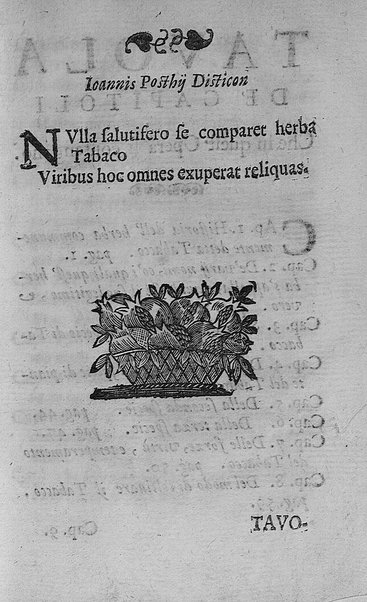 Ioannis Posthij Disticon
NVlla salutifero se comparet herba
Tabaco
Viribus hoc omnes exuperat reliquas.
TAVO-